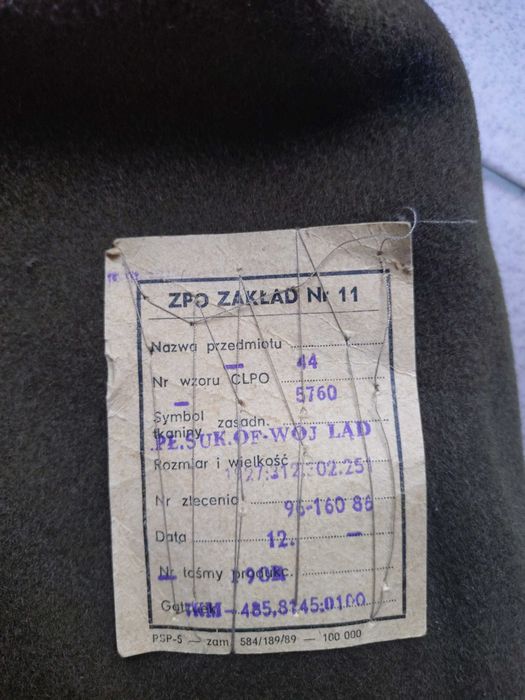 ZPO ZAKŁAD Nr 11
Nazwa przedmiotu
44
Nr wzoru CLPO
5760
Symbol tkaniny zasadn.
PŁ.SUK.OF-WOJ LĄD
Rozmiar i wielkość
Nr zlecenia
96-160 86
Data 12.
Nr taśmy produkc.
Gatunek
485,8145:0100
PSP-S — zam. 584/189/89 — 100 000